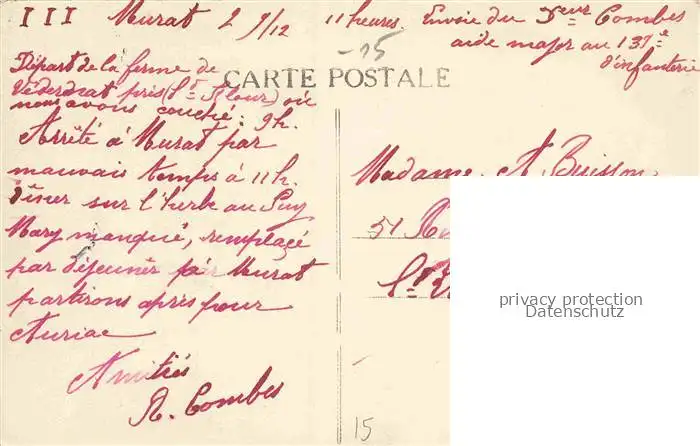 III Murat 2 9/12 11 heures. Envoie du Dteur Combes
aide major au 137e
d'infanterie
-15
CARTE POSTALE
Départ de la ferme de
près (St Flour) où
nous avons couché : 9h.
Arrêté à Murat par
mauvais temps à 11h.
Dîner sur l'herbe au Puy
Mary manqué, remplacé
par déjeuner par Murat
partirons après pour
Auriac
Amitiés
A. Combes
Madame A. Buisson
51
St
privacy protection
Datenschutz
15